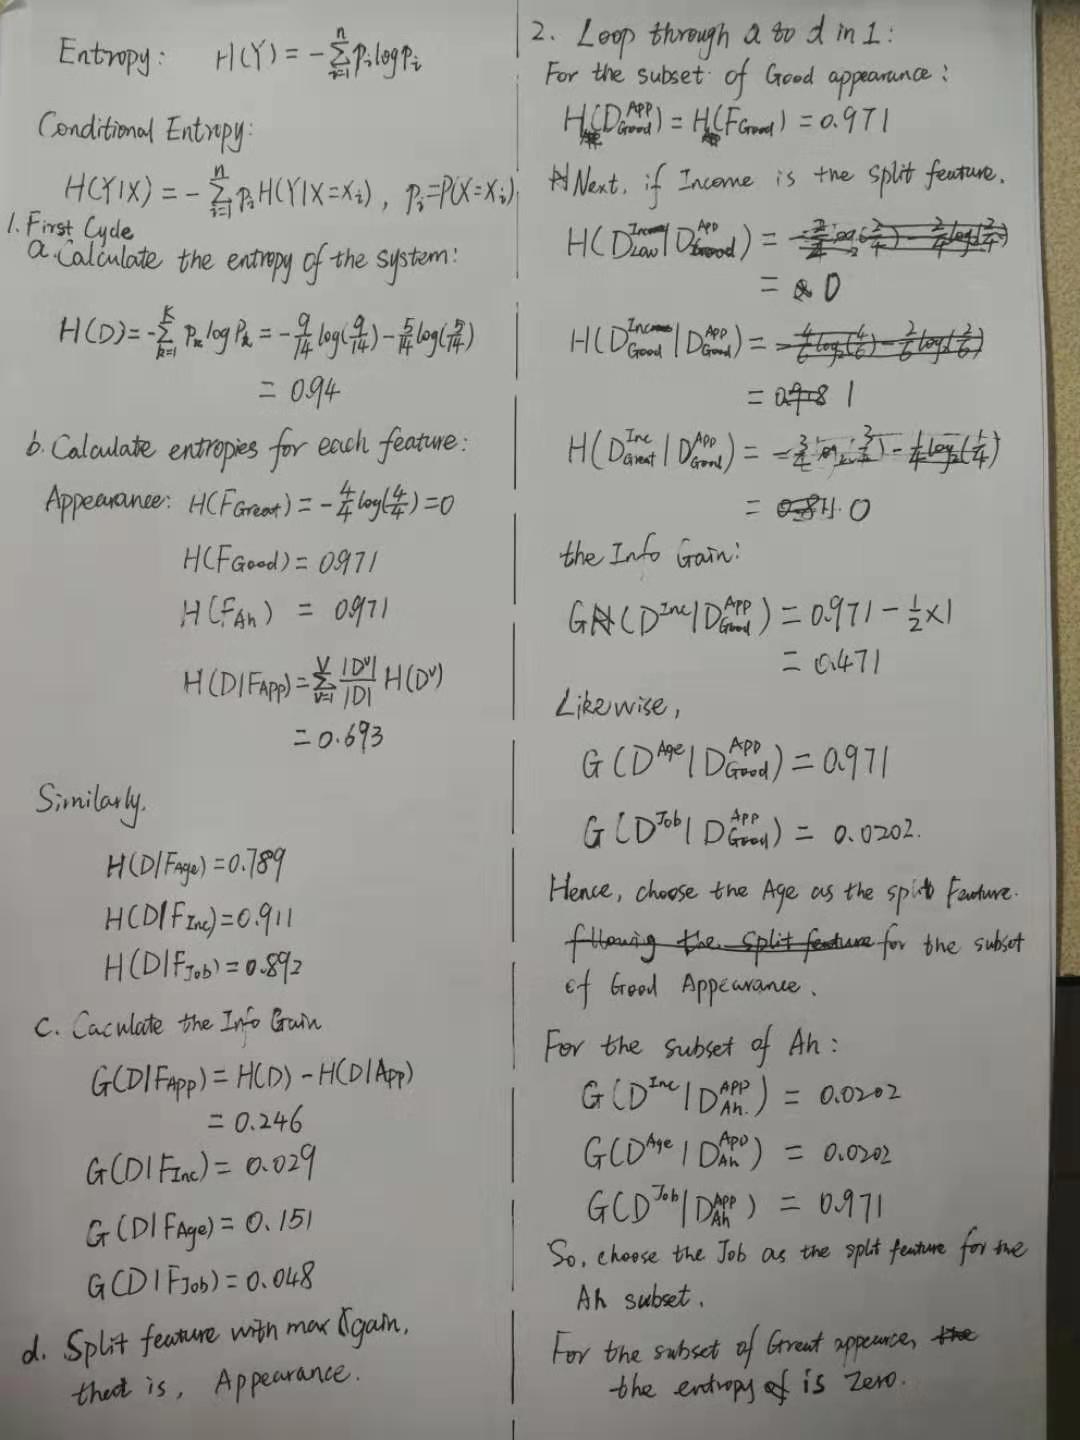 Entropy: H(Y) = -∑_{i=1}^{n} p_i log p_i
Conditional Entropy:
H(Y|X) = -∑_{i=1}^{n} p_i H(Y|X=x_i), p_i=P(X=x_i)
1. First Cycle
a. Calculate the entropy of the system:
H(D) = -∑_{k=1}^{K} p_k log p_k = -9/14 log(9/14) - 5/14 log(5/14)
= 0.94
b. Calculate entropies for each feature:
Appearance: H(F_Great) = -4/4 log(4/4) = 0
H(F_Good) = 0.971
H(F_Ah) = 0.971
H(D|F_APP) = ∑_{v=1}^{V} |D^v|/|D| H(D^v)
= 0.693
Similarly,
H(D|F_Age) = 0.789
H(D|F_Inc) = 0.911
H(D|F_Job) = 0.892
c. Caculate the Info Gain
G(D|F_APP) = H(D) - H(D|APP)
= 0.246
G(D|F_Inc) = 0.029
G(D|F_Age) = 0.151
G(D|F_Job) = 0.048
d. Split feature with max gain,
that is, Appearance.
2. Loop through a to d in 1:
For the subset of Good appearance:
H(D_Good^APP) = H(F_Good) = 0.971
Next, if Income is the split feature.
H(D_Low^Income|D_Good^APP) =
= 0
H(D_Good^Income|D_Good^APP) = -4/6 log_2(4/6) - 2/6 log_2(2/6)
= 1
H(D_Great^Inc|D_Good^APP) = -3/4 log_2(3/4) - 1/4 log_2(1/4)
= 0
the Info Gain:
G(D^Inc|D_Good^APP) = 0.971 - 1/2×1
= 0.471
Likewise,
G(D^Age|D_Good^APP) = 0.971
G(D^Job|D_Good^APP) = 0.0202.
Hence, choose the Age as the split Feature.
fllowing the split feature for the subset
of Good Appearance.
For the subset of Ah:
G(D^Inc|D_Ah.^APP) = 0.0202
G(D^Age|D_Ah^APP) = 0.0202
G(D^Job|D_Ah^APP) = 0.971
So, choose the Job as the split feature for the
Ah subset.
For the subset of Great appearce, the
the entropy of is Zero.